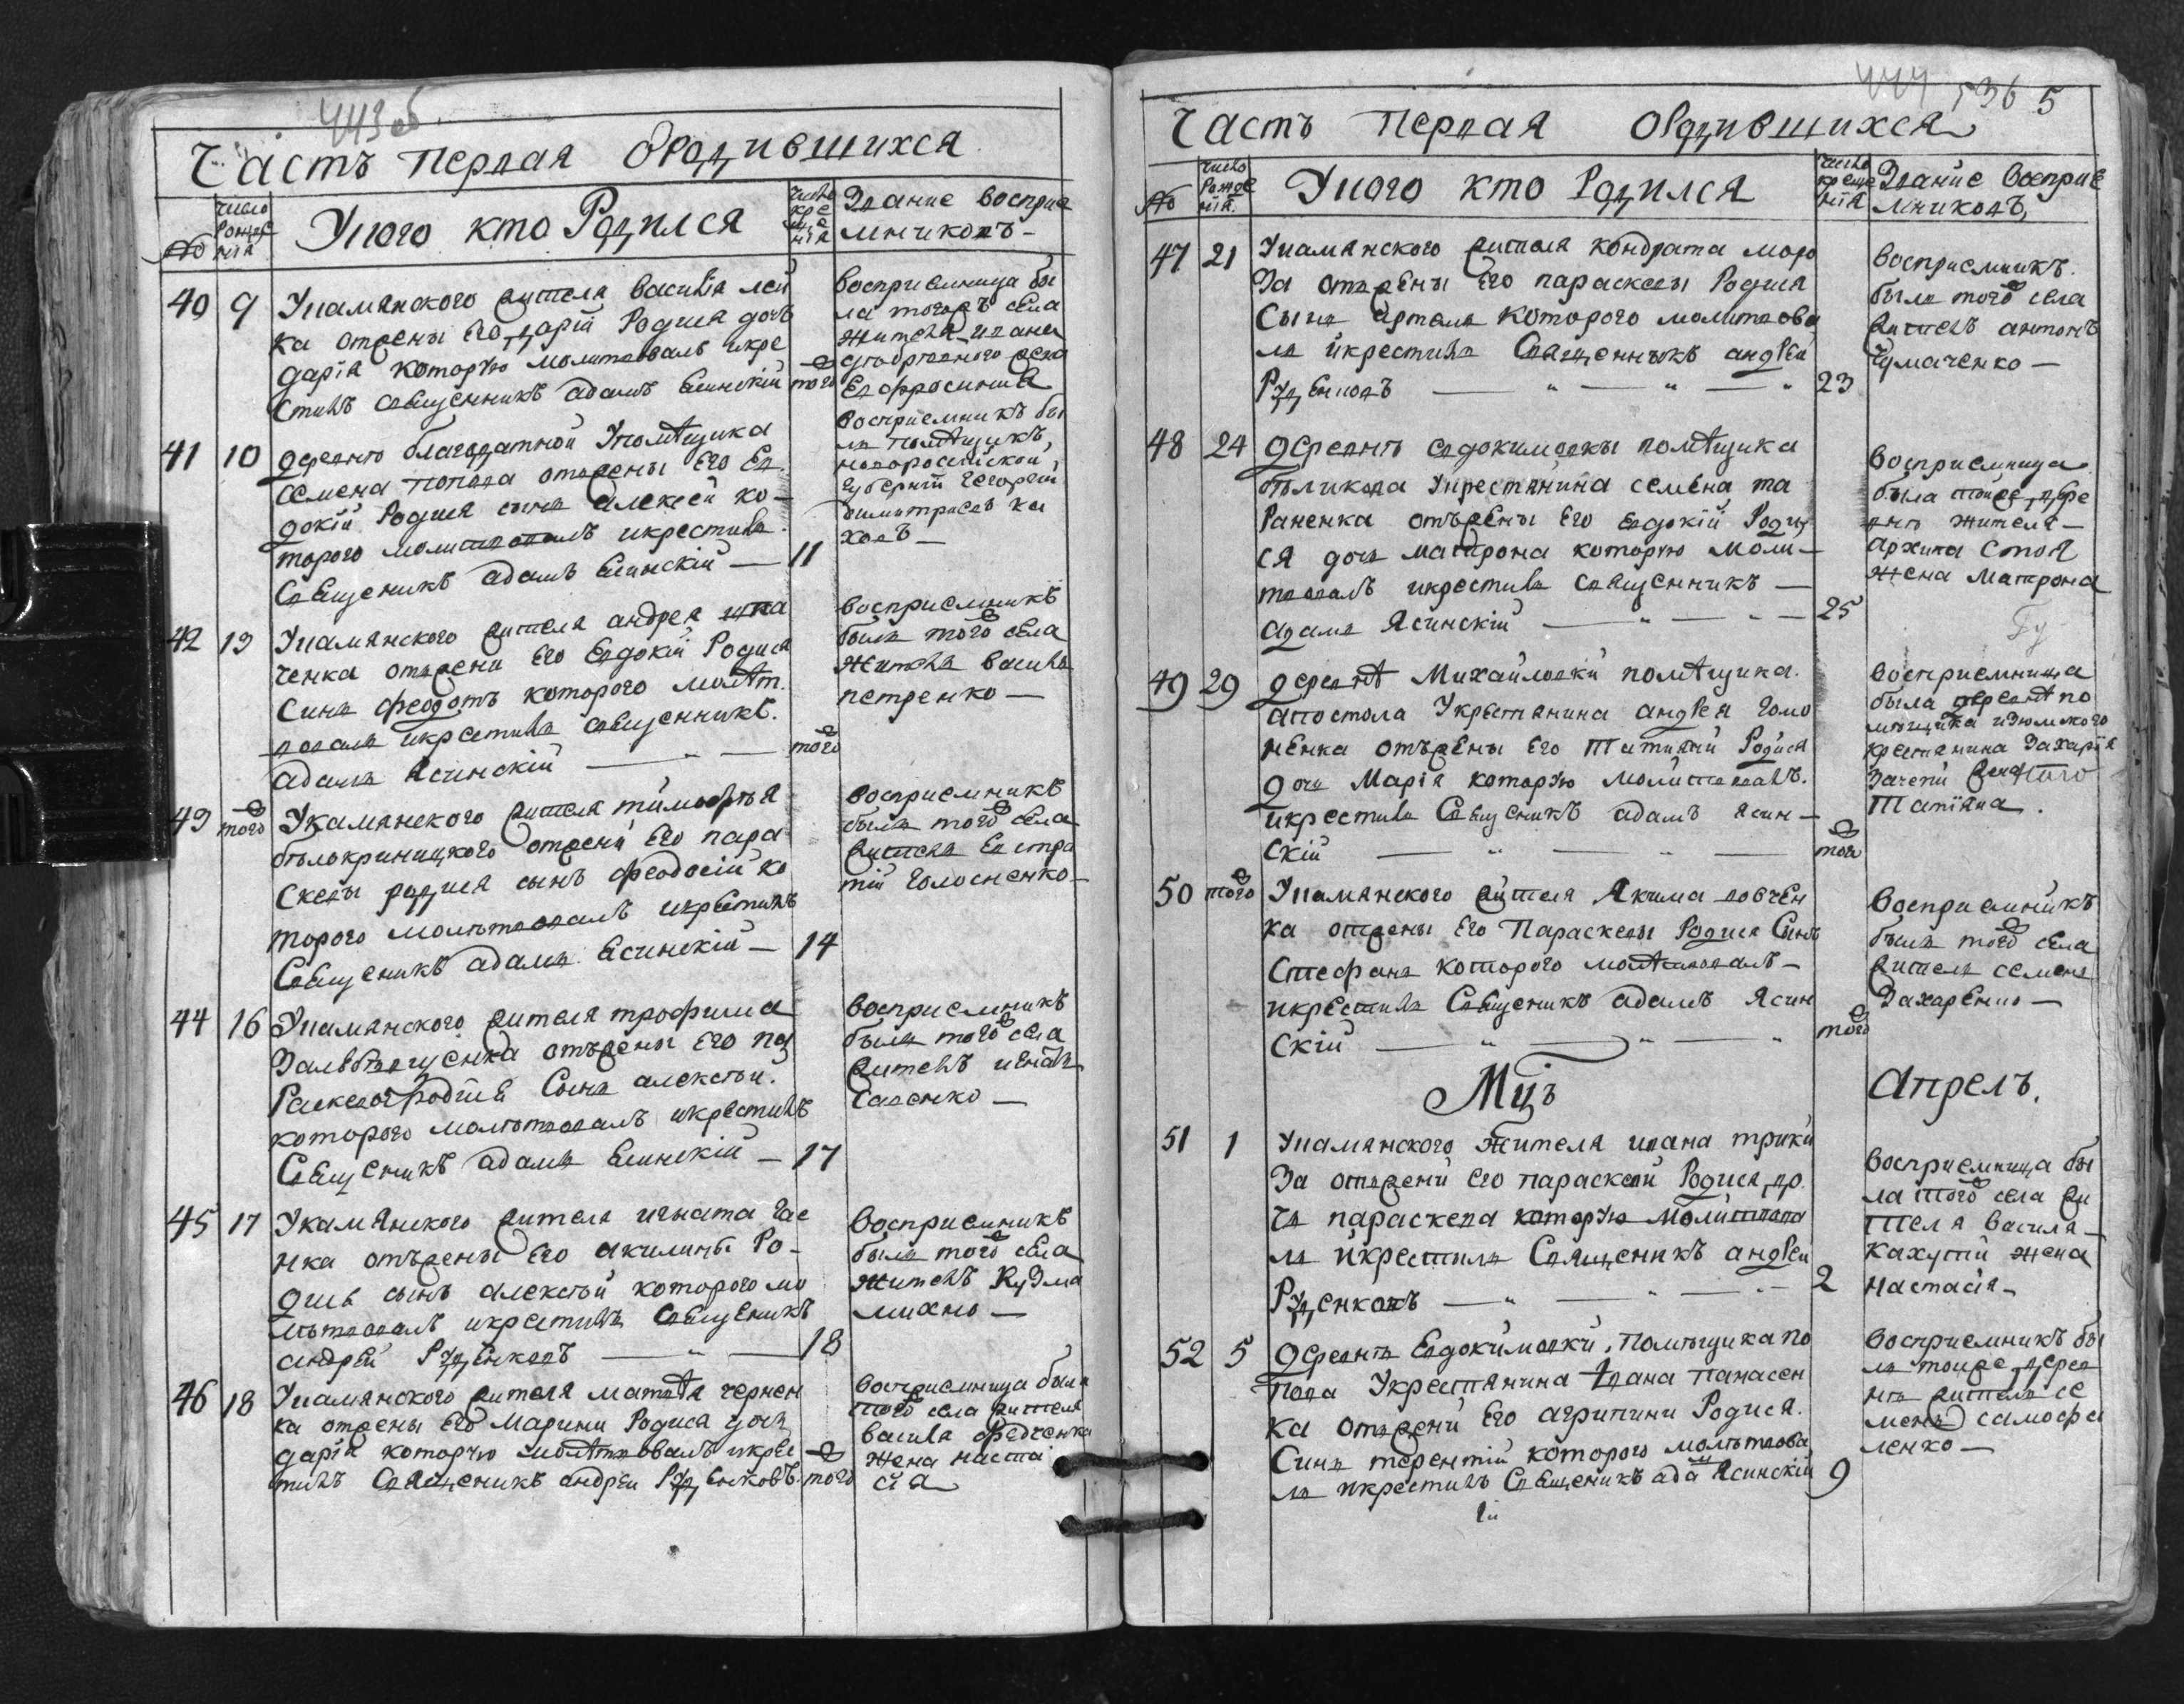 443 об
Часть Первая О Родившихся
№
число Рождения
У кого кто Родился
число крещения
Звание восприемниковъ
40 9 Укаманского жителя василія лей
ка отжены его дарій Родися дочъ
дарія которую молитвовалъ икре
стилъ священникъ адамъ Есинскій того
восприемница бы
ла тогожъ села
жителя ивана
жена
Евфросиния
41 10 деревнѣ благодатной Упомѣщика
семена попова отжены Его Ев
докій Родися сынъ алексей ко
торого молитвовалъ икрестилъ
Священикъ адамъ Есинскій — 11
восприемникъ бы
лъ помѣщикъ
новоросийской
губерній Георгій
42 13 Укаманского жителя андрея
ченка отжени Его Евдокій Родися
Синъ федотъ которого молит
вовалъ икрестилъ священникъ
адамъ Ясинскій — того
восприемникъ
былъ того села
житель василъ
петренко —
43 того Укаманского жителя тимофѣя
бѣлокриницкого отжени Его пара
скевы родися сынъ феодосій ко
торого молѣтвовалъ икрѣстилъ
Священикъ адамъ Есинскій — 14
восприемникъ
былъ того села
житель Евстра
тій Голосненко —
44 16 Укаманского жителя трофима
отъжены Его па
раскевы родися Сынъ алексѣй
которого молѣтвовалъ икрестилъ
Священикъ адамъ Есинскій — 17
восприемникъ
былъ того села
житель игнатъ
Савенко —
45 17 Укамянского жителя игната Гае
нка отъжены Его акилины Ро-
дися сынъ алексѣй которого мо
лѣтвовалъ икрестилъ Священикъ
андрей Руденковъ — 18
восприемникъ
былъ того села
житель Кузма
михно —
46 18 Укаманского жителя матвѣя чернен
ка отжены Его Марини Родися дочъ
дарія которую молѣтвовалъ икрес
тилъ Священикъ андрей Руденковъ того
восприемница была
того села жителя
василя федченка
жена наста
сія
444 536 5
Часть Первая О Родившихся
№
число Рожденія
У кого кто Родился
число крещенія
Званіе восприемниковъ
47 21 Укаманского жителя кондрата моро
за отжены Его параскевы Родися
Сынъ Артемъ которого молитвова
лъ икрестилъ Священникъ андрей
Руденковъ — 23
восприемникъ
былъ того села
житель антонъ
Чумаченко —
48 24 деревнѣ евдокимовкы помѣщика
бѣликова Укрестянина семена та
раненка отъжены Его евдокій Родил
ся дочъ матрона которую моли-
твовалъ икрестилъ священникъ —
адамъ Ясинскій — 25
восприемница
была тойже дере
внѣ жителя —
архипа Стоя
жена матрона
49 29 деревнѣ Михайловки помѣщика
апостола Укрестянина андрея Голо
ненка отъжены Его татияни Родися
дочъ Марія которую молитвовалъ
икрестилъ Священикъ адамъ Ясин-
скій — того
восприемница
была деревнѣ по
мѣщика
крестянина захарія
жена
татіяна.
50 того Укаманского жителя Якима вовчен
ка отжены Его Параскевы Родися Синъ
Стефанъ которого молѣтвовалъ —
икрестилъ Священикъ адамъ Ясин
скій — того
восприемникъ
былъ того села
житель семенъ
Захаренко —
Мцъ Апрелъ.
51 1 Укаманского жителя ивана трики
за отжени его параскевй Родися до
чъ параскева которую молитвова
лъ икрестилъ Священикъ андрей
Руденковъ — 2
восприемница бы
ла того села жи
теля василя —
Кахутій жена
настасія —
52 5 деревнѣ Евдокимовки, помѣщика по
пова Укрестянина Ивана панасен
ка отжени Его агрипини Родися
Синъ терентій которого молѣтвова
лъ икрестилъ Священикъ адамъ Ясинскій 9
восприемникъ бы
лъ тойже дерев
нѣ житель се
менъ самофа
ленко —